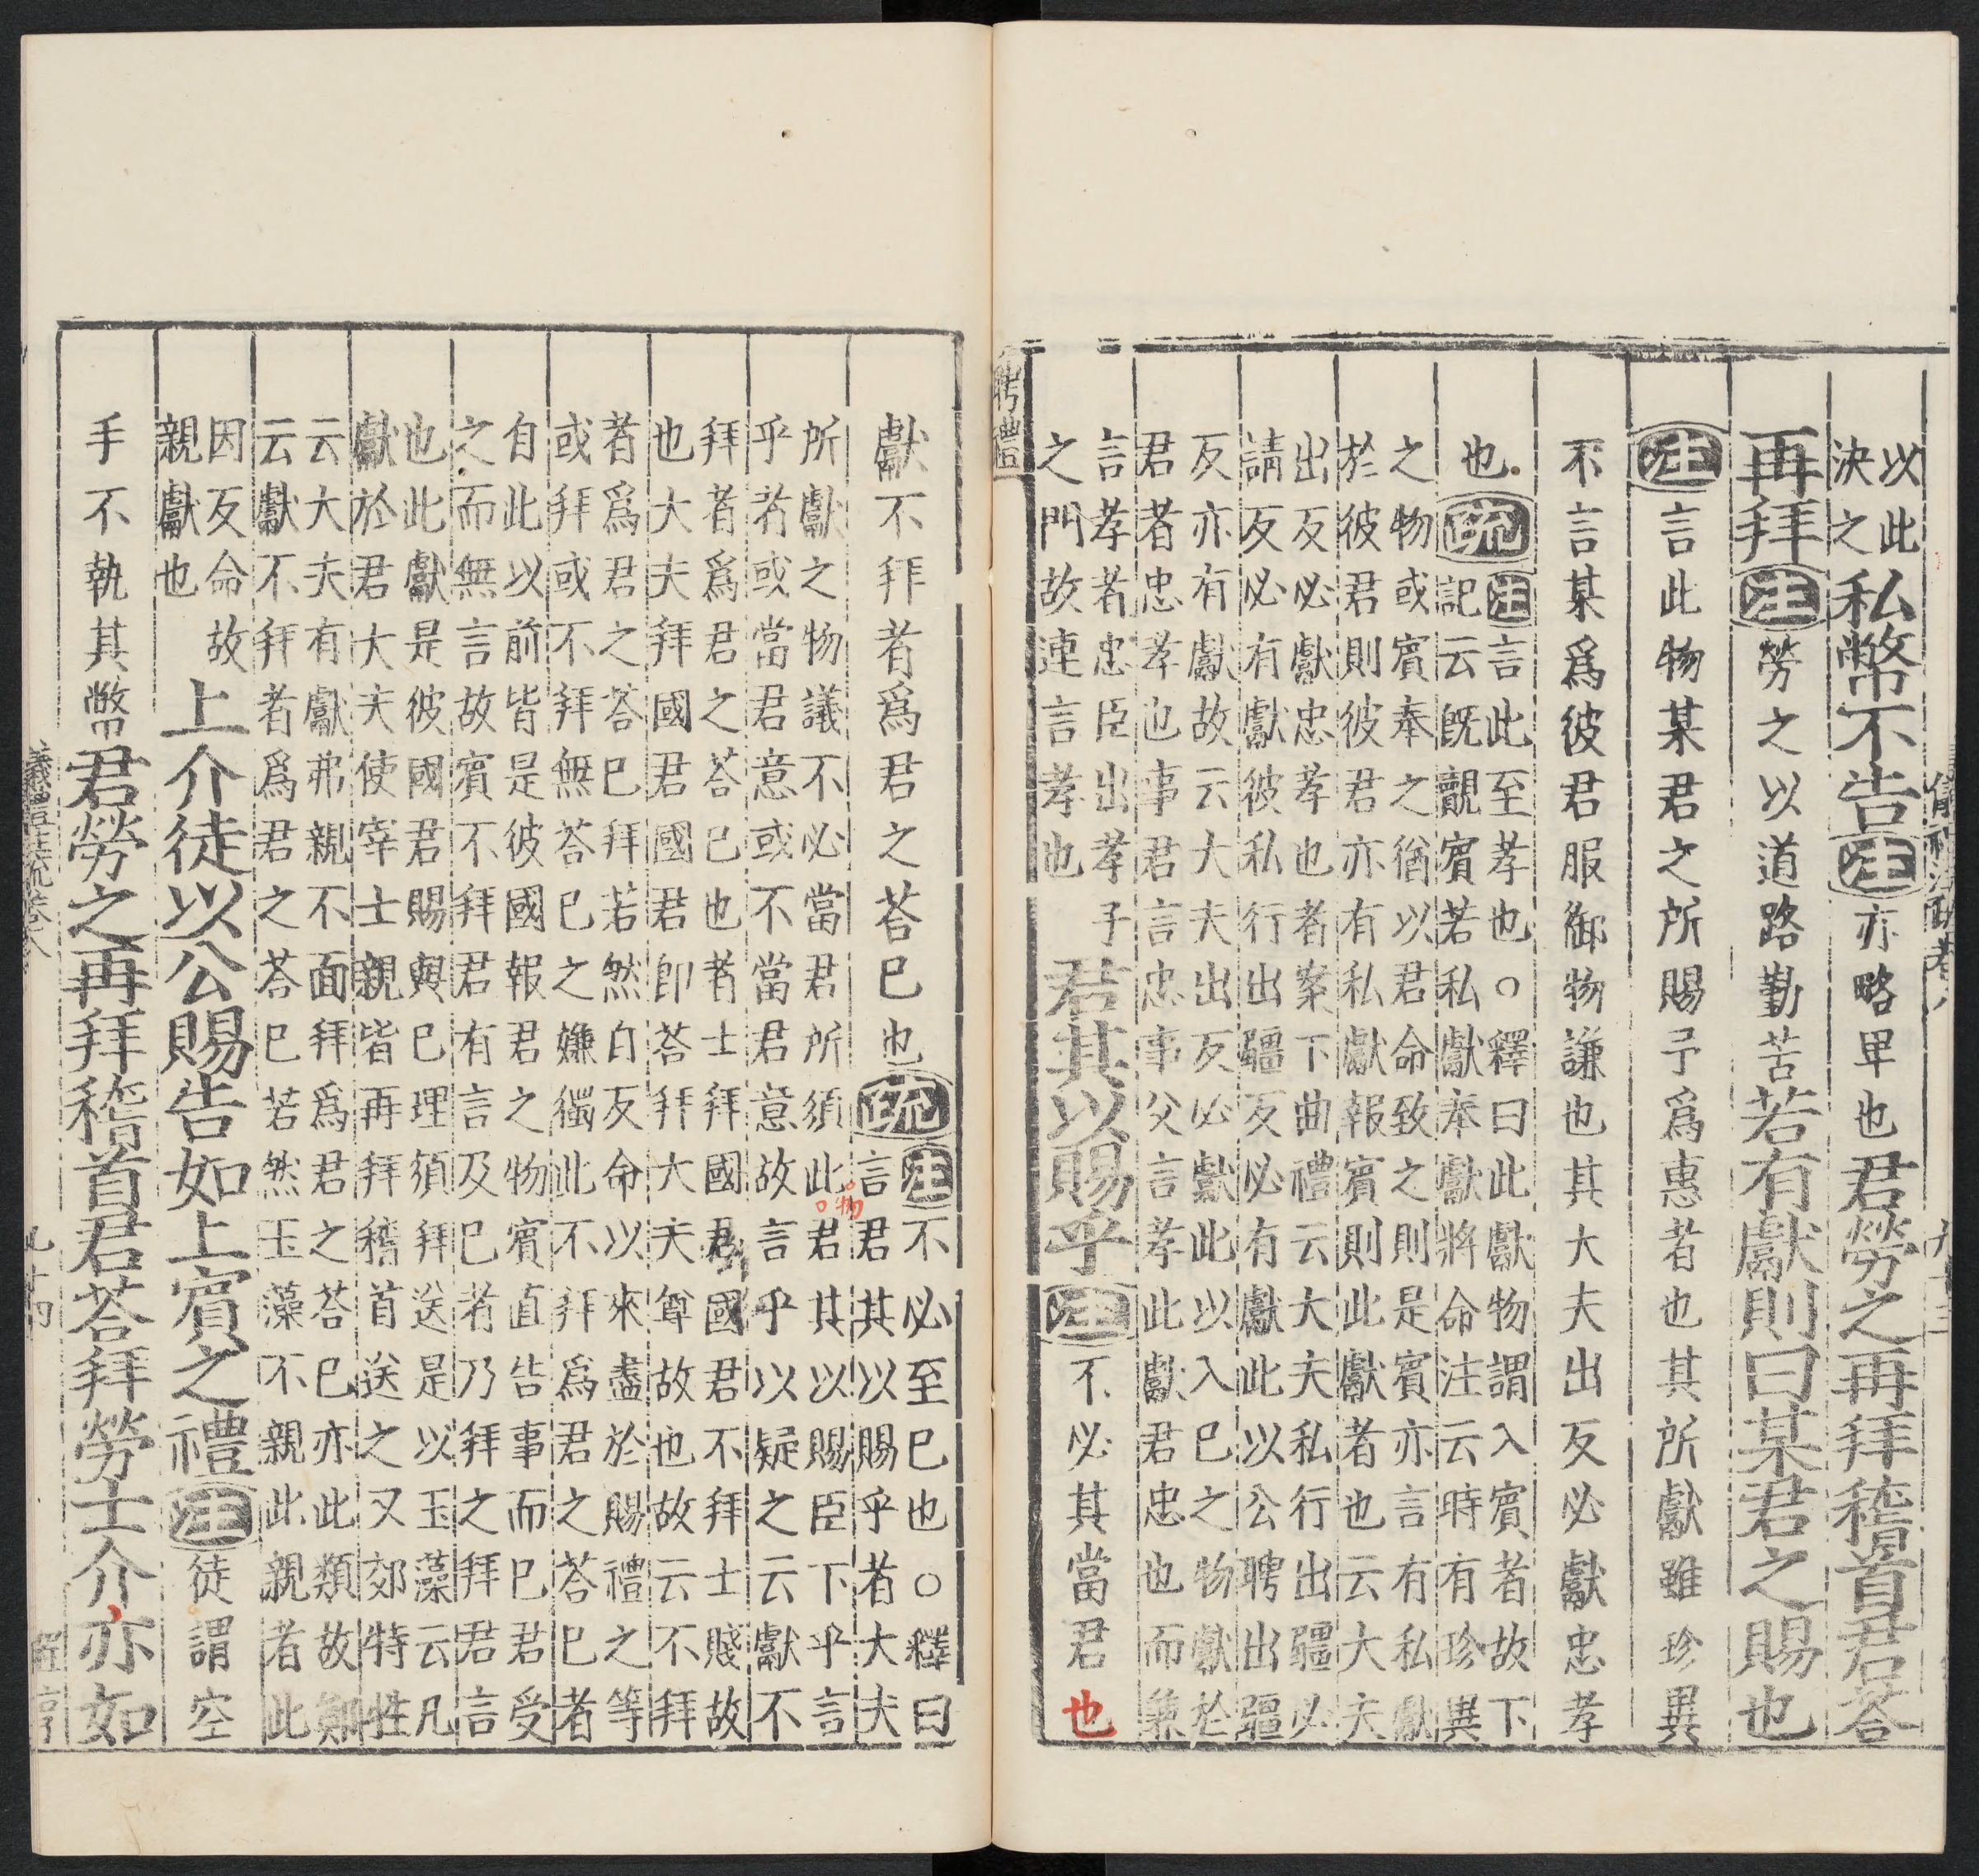 以此
決之
私幣不告注亦略卑也君勞之再拜稽首君荅
再拜注勞之以道路勤苦若有獻則曰某君之賜也
注言此物某君之所賜予爲惠者也其所獻雖珍異
不言某爲彼君服御物謙也其大夫出反必獻忠孝
也疏
注言此至孝也○釋曰此獻物謂入賓者故下
記云旣覿賓若私獻奉獻將命注云時有珍異
之物或賓奉之猶以君命致之則是賓亦言有私獻
於彼君則彼君亦有私獻報賓則此獻者也云大夫
出反必獻忠孝也者案下曲禮云大夫私行出疆必
請反必有獻彼私行出疆反必有獻此以公聘出疆
反亦有獻故云大夫出反必獻此以入已之物獻於
君者忠孝也事君言忠事父言孝此獻君忠也而兼
言孝者忠臣出孝子
之門故連言孝也
君其以賜乎注不必其當君也
聘禮
獻不拜者爲君之荅已也疏
注不必至已也○釋曰
言君其以賜乎者大夫
所獻之物議不必當君所須此物君其以賜臣下乎言
乎者或當君意或不當君意故言乎以疑之云獻不
拜者爲君之荅已也者士拜國君國君不拜士賤故
也大夫拜國君國君即荅拜大夫尊故也故云不拜
者爲君之荅已拜若然自反命以來盡於賜禮之等
或拜或不拜無荅已之嫌獨此不拜爲君之荅已者
自此以前皆是彼國報君之物賓直告事而已君受
之而無言故賓不拜君有言及已者乃拜之拜君言
也此獻是彼國君賜與已理須拜送是以玉藻云凡
獻於君大夫使宰士親皆再拜稽首送之又郊特牲
云大夫有獻弗親不面拜爲君之荅已亦此類故鄭
云獻不拜者爲君之荅已若然玉藻不親此親者此
因反命故
親獻也
上介徒以公賜告如上賓之禮注徒謂空
手不執其幣君勞之再拜稽首君荅拜勞士介亦如
儀禮注疏卷八